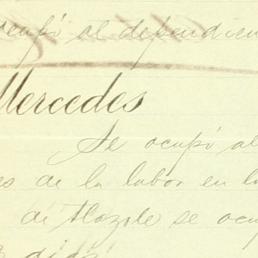 ocupó al dependien
Mercedes
Se ocupó al
es de la labor en la
di Mozote se ocu
3 dias